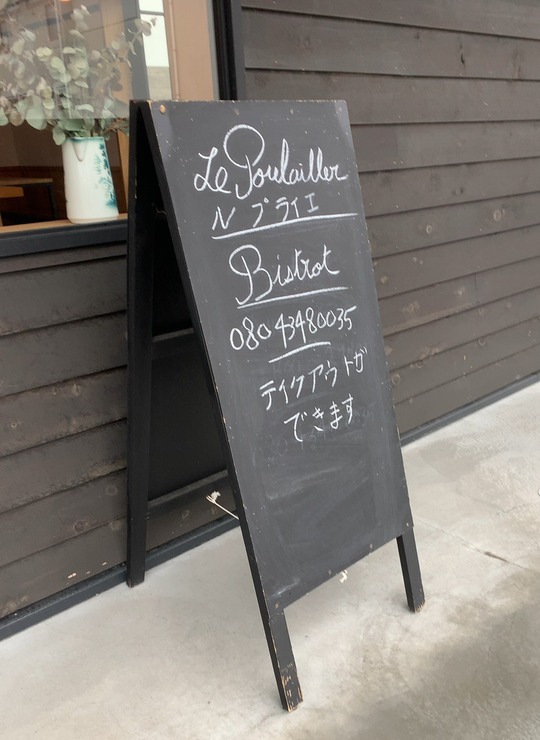 Le Poulailler
ル プライエ
Bistrot
080 43480035
テイクアウトが
できます